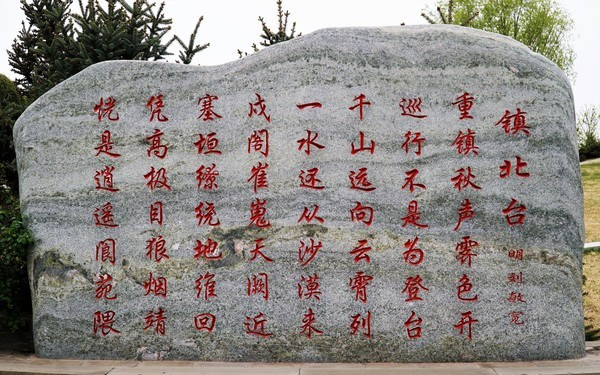 镇北台 明刘敏宽
重镇秋声霁色开
巡行不是为登台
千山远向云霄列
一水还从沙漠来
戍阁崔嵬天阙近
塞垣缭绕地维回
凭高极目狼烟靖
恍是逍遥阆苑隈